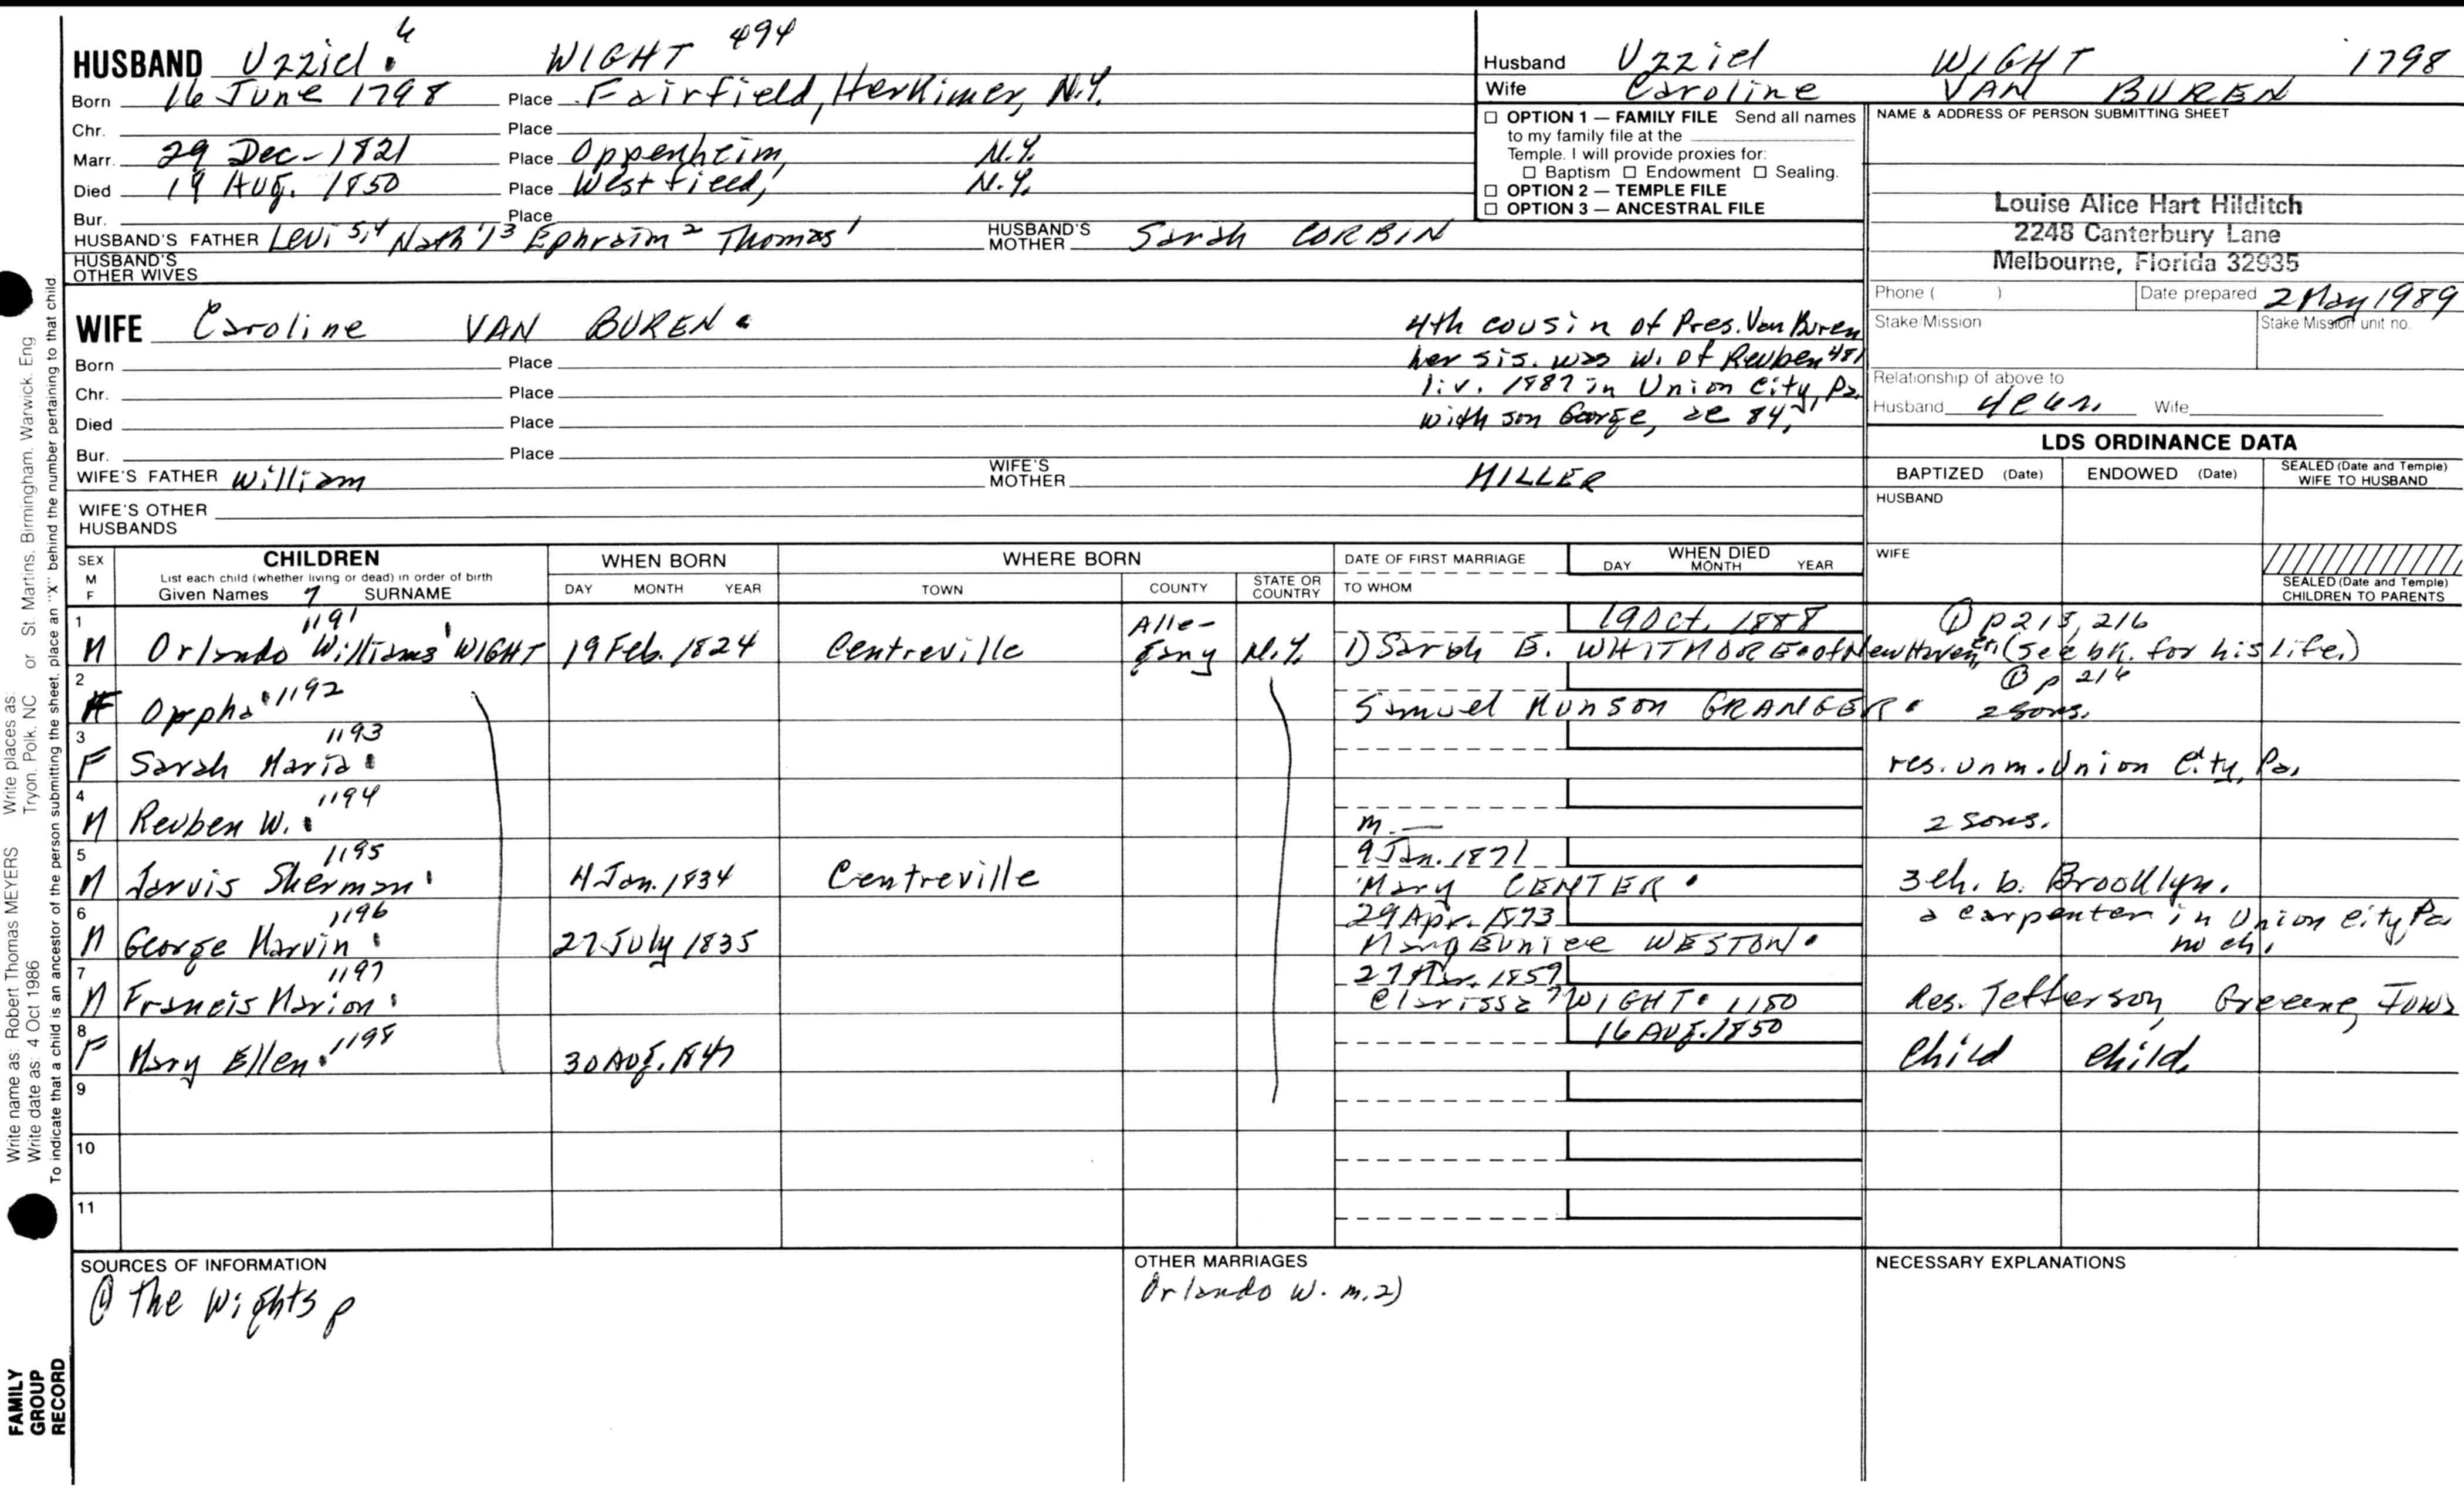 HUSBAND Uzziel 6 WIGHT 494
Born 16 June 1798 Place Fairfield, Herkimer, N.Y.
Chr. Place
Marr. 29 Dec - 1821 Place Oppenheim, N.Y.
Died 19 Aug. 1850 Place Westfield, N.Y.
Bur. Place
HUSBAND'S FATHER Levi 5,4 Nath'l 3 Ephraim 2 Thomas 1 HUSBAND'S MOTHER Sarah CORBIN
HUSBAND'S OTHER WIVES
Husband Uzziel WIGHT 1798
Wife Caroline VAN BUREN
☐ OPTION 1 — FAMILY FILE Send all names
to my family file at the
Temple. I will provide proxies for:
☐ Baptism ☐ Endowment ☐ Sealing.
☐ OPTION 2 — TEMPLE FILE
☐ OPTION 3 — ANCESTRAL FILE
NAME & ADDRESS OF PERSON SUBMITTING SHEET
Louise Alice Hart Hilditch
2248 Canterbury Lane
Melbourne, Florida 32935
Phone ( ) Date prepared 2 May 1989
Stake/Mission Stake/Mission unit no.
Relationship of above to
Husband 4c4r. Wife
WIFE Caroline VAN BUREN
4th cousin of Pres. Van Buren
her sis. was w. of Reuben 481
liv. 1887 in Union City, Pa.
with son George, ae 84,
Born Place
Chr. Place
Died Place
Bur. Place
WIFE'S FATHER William WIFE'S MOTHER MILLER
WIFE'S OTHER HUSBANDS
LDS ORDINANCE DATA
BAPTIZED (Date) ENDOWED (Date) SEALED (Date and Temple) WIFE TO HUSBAND
HUSBAND
WIFE
SEALED (Date and Temple) CHILDREN TO PARENTS
SEX M F CHILDREN
List each child (whether living or dead) in order of birth
Given Names 7 SURNAME
WHEN BORN DAY MONTH YEAR
WHERE BORN TOWN COUNTY STATE OR COUNTRY
DATE OF FIRST MARRIAGE TO WHOM
WHEN DIED DAY MONTH YEAR
1 M Orlando Williams WIGHT 1191 19 Feb. 1824 Centreville Alle-gany N.Y. 19 Oct. 1888 1) Sarah E. WHITMORE of New Haven, Ct. (See bk. for his life.) ① p 215, 216
2 F Orpha 1192 Samuel Munson GRANGER 2 sons. ① p 216
3 F Sarah Maria 1193 res. unm. Union City, Pa.
4 M Reuben W. 1194 m. — 2 sons.
5 M Jarvis Sherman 1195 4 Jan. 1834 Centreville 9 Jan. 1871 Mary CENTER 3 ch. b. Brooklyn.
6 M George Marvin 1196 27 July 1835 29 Apr. 1873 Mary Eunice WESTON a carpenter in Union City, Pa no ch.
7 M Francis Marion 1197 27 Mar. 1859 Clarissa 7 WIGHT 1150 Res. Jefferson, Greene, Iowa
8 F Mary Ellen 1198 30 Aug. 1847 16 Aug. 1850 Child Child.
9
10
11
SOURCES OF INFORMATION
① The Wights p
OTHER MARRIAGES
Orlando W. m. 2)
NECESSARY EXPLANATIONS
Write name as: Robert Thomas MEYERS Write places as: Tryon, Polk, NC or St. Martins, Birmingham, Warwick, Eng
Write date as: 4 Oct 1986
To indicate that a child is an ancestor of the person submitting the sheet, place an "X" behind the number pertaining to that child.
FAMILY
GROUP
RECORD